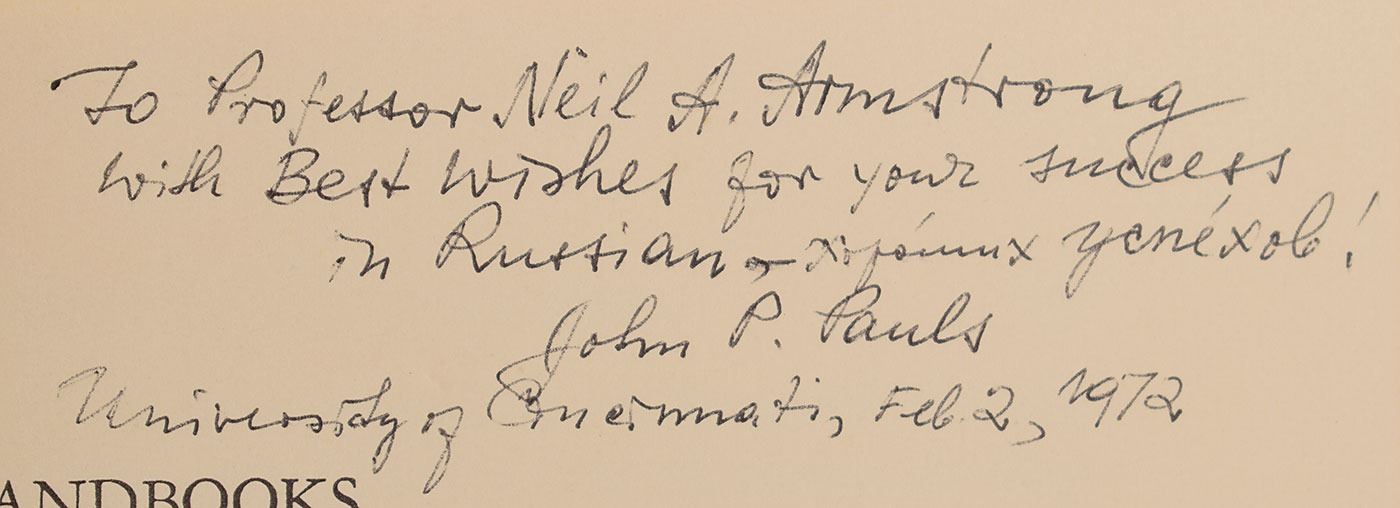 To Professor Neil A. Armstrong
with Best wishes for your success
in Russian – хоро́ших успе́хов!
John P. Pauls
University of Cincinnati, Feb. 2, 1972
ANDBOOKS